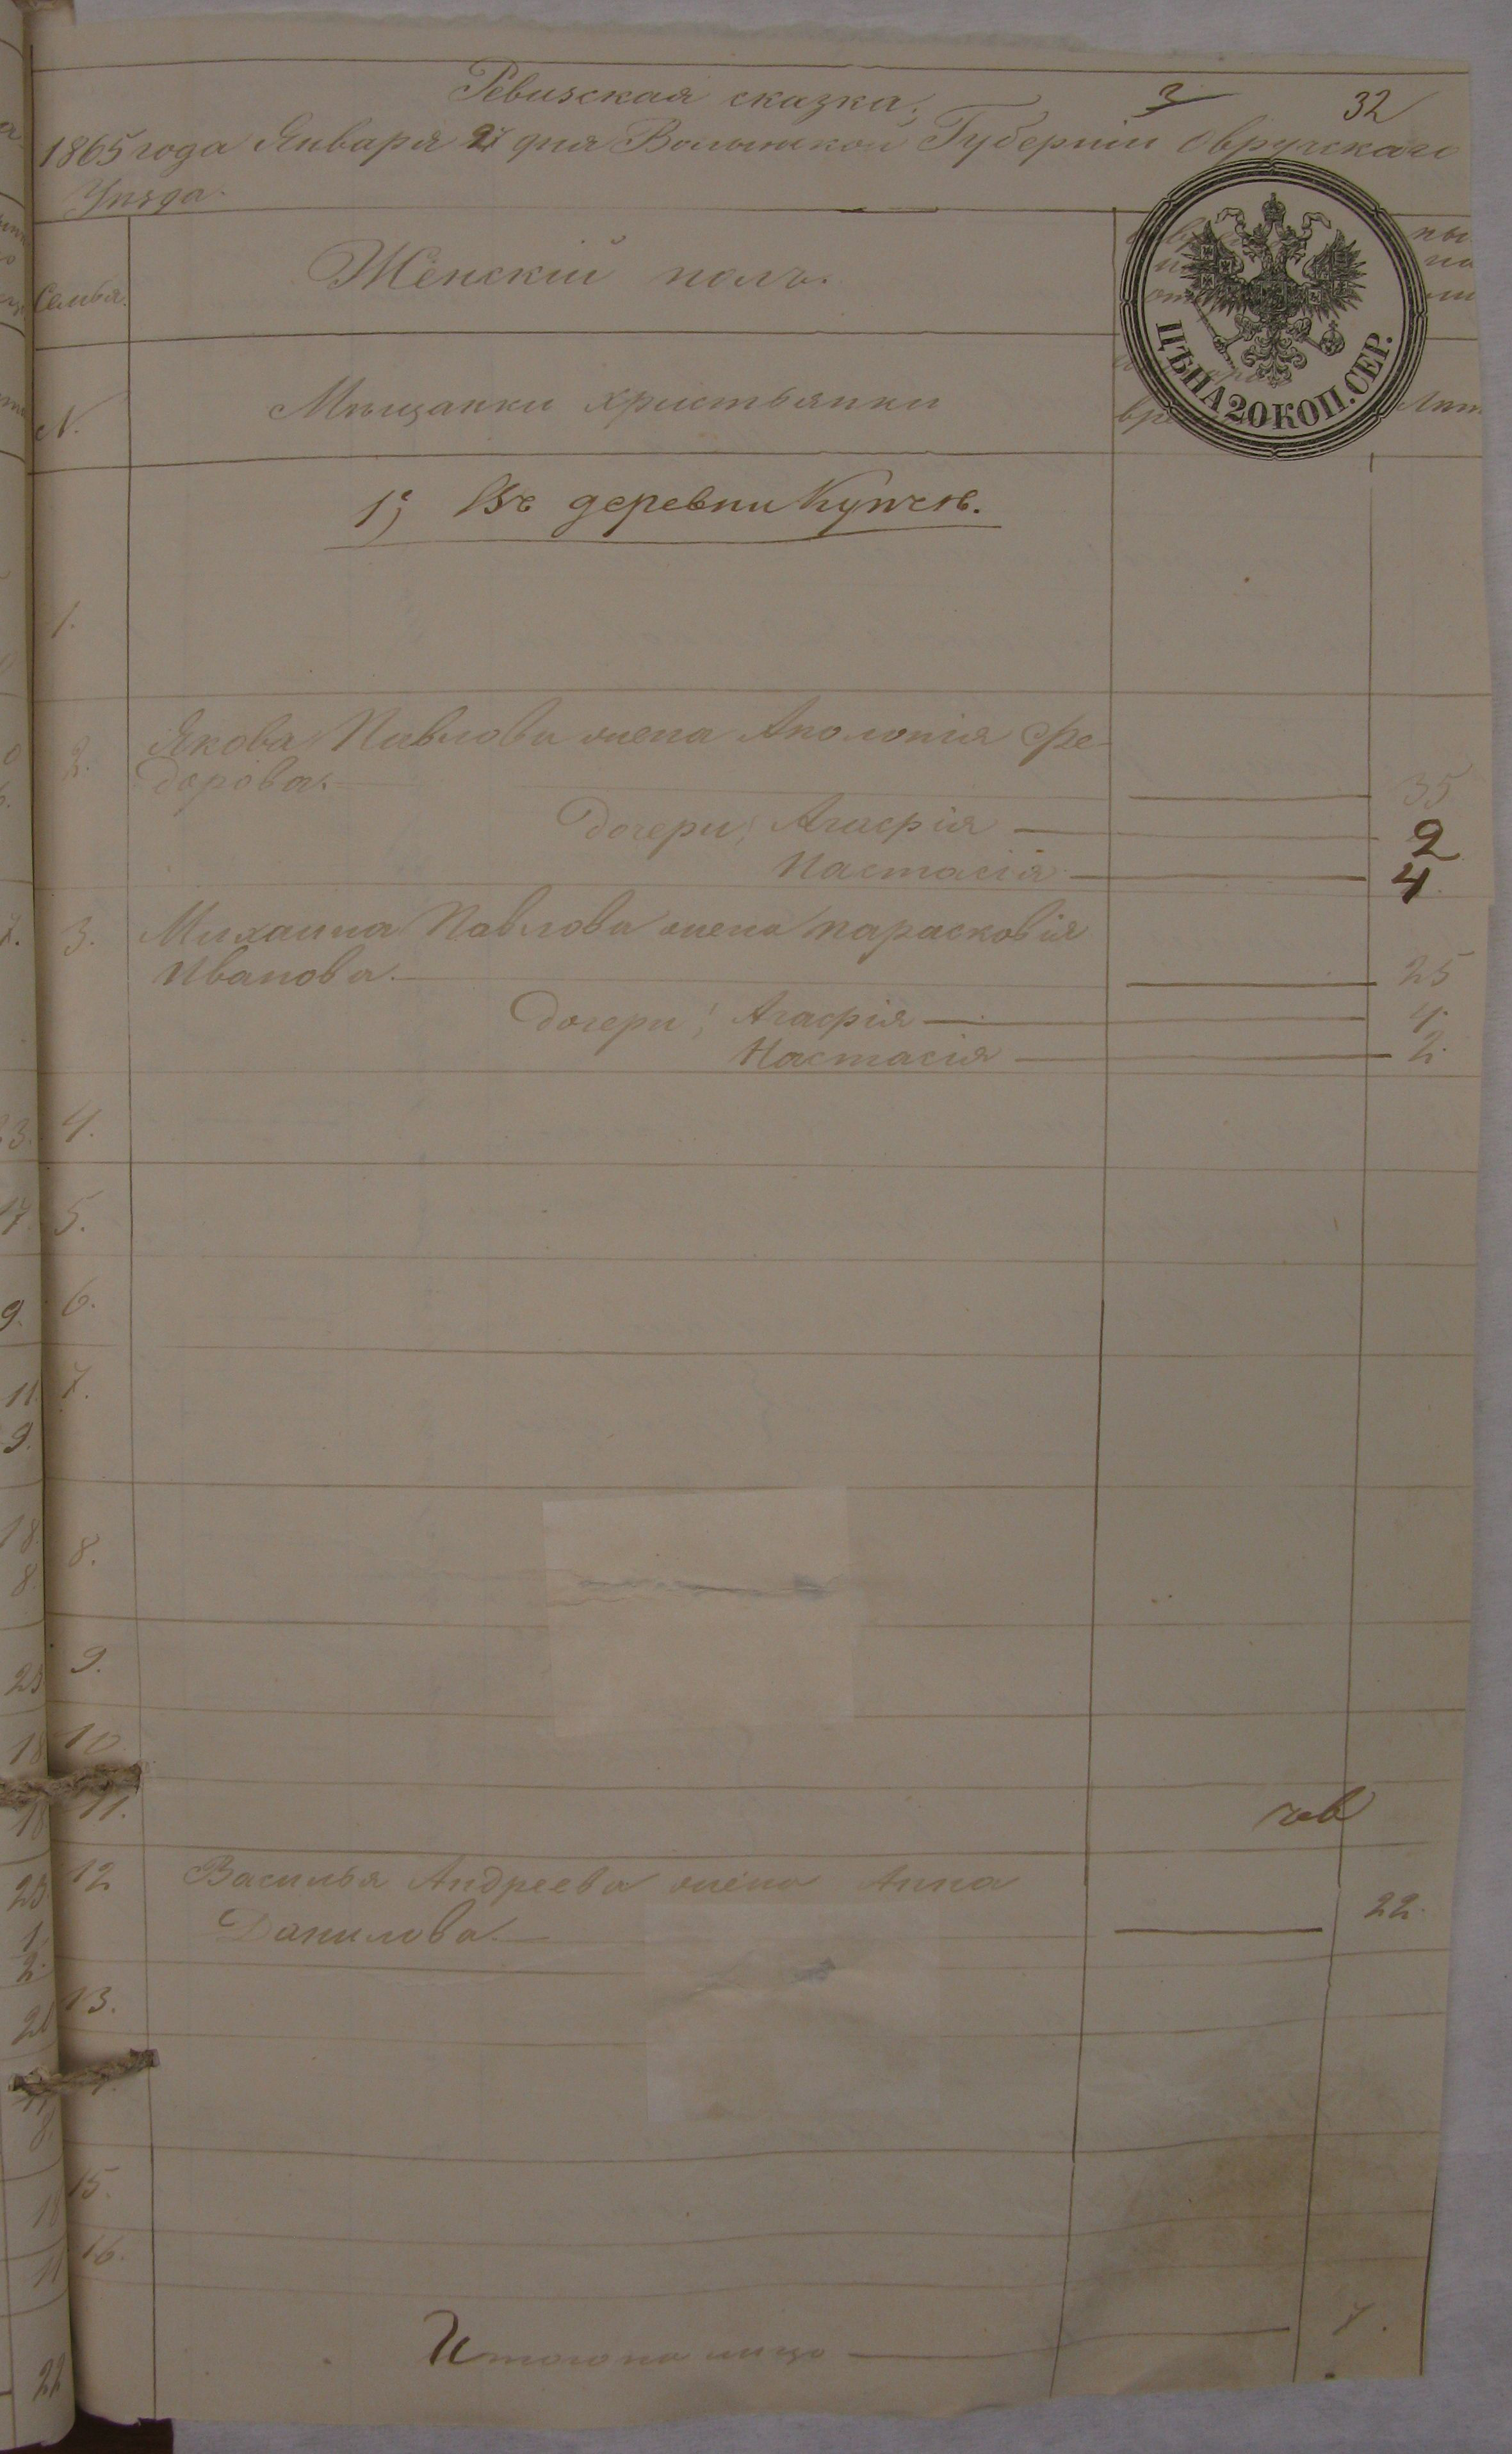 Ревизская сказка;
3 32
1865 года Января 27 дня Волынской Губерніи Овручскаго
Уѣзда.
Семья.
Женскій полъ.
ЦѢНА 20 КОП. СЕР.
N.
Мѣщанки христьянки
Лѣт
1) Въ деревни Купчѣ.
1.
2. Якова Павлова жена Аполонія Фе-
дорова. 35
Дочери: Агафія 2
Настасія 4
3. Михаила Павлова жена Парасковія
Иванова. 25
Дочери: Агафія 4.
Настасія 2.
4.
5.
6.
7.
8.
9.
10.
11.
12 Василья Андреева жена Анна
Данилова. 22.
13.
15.
16.
Итого на лицо 7.